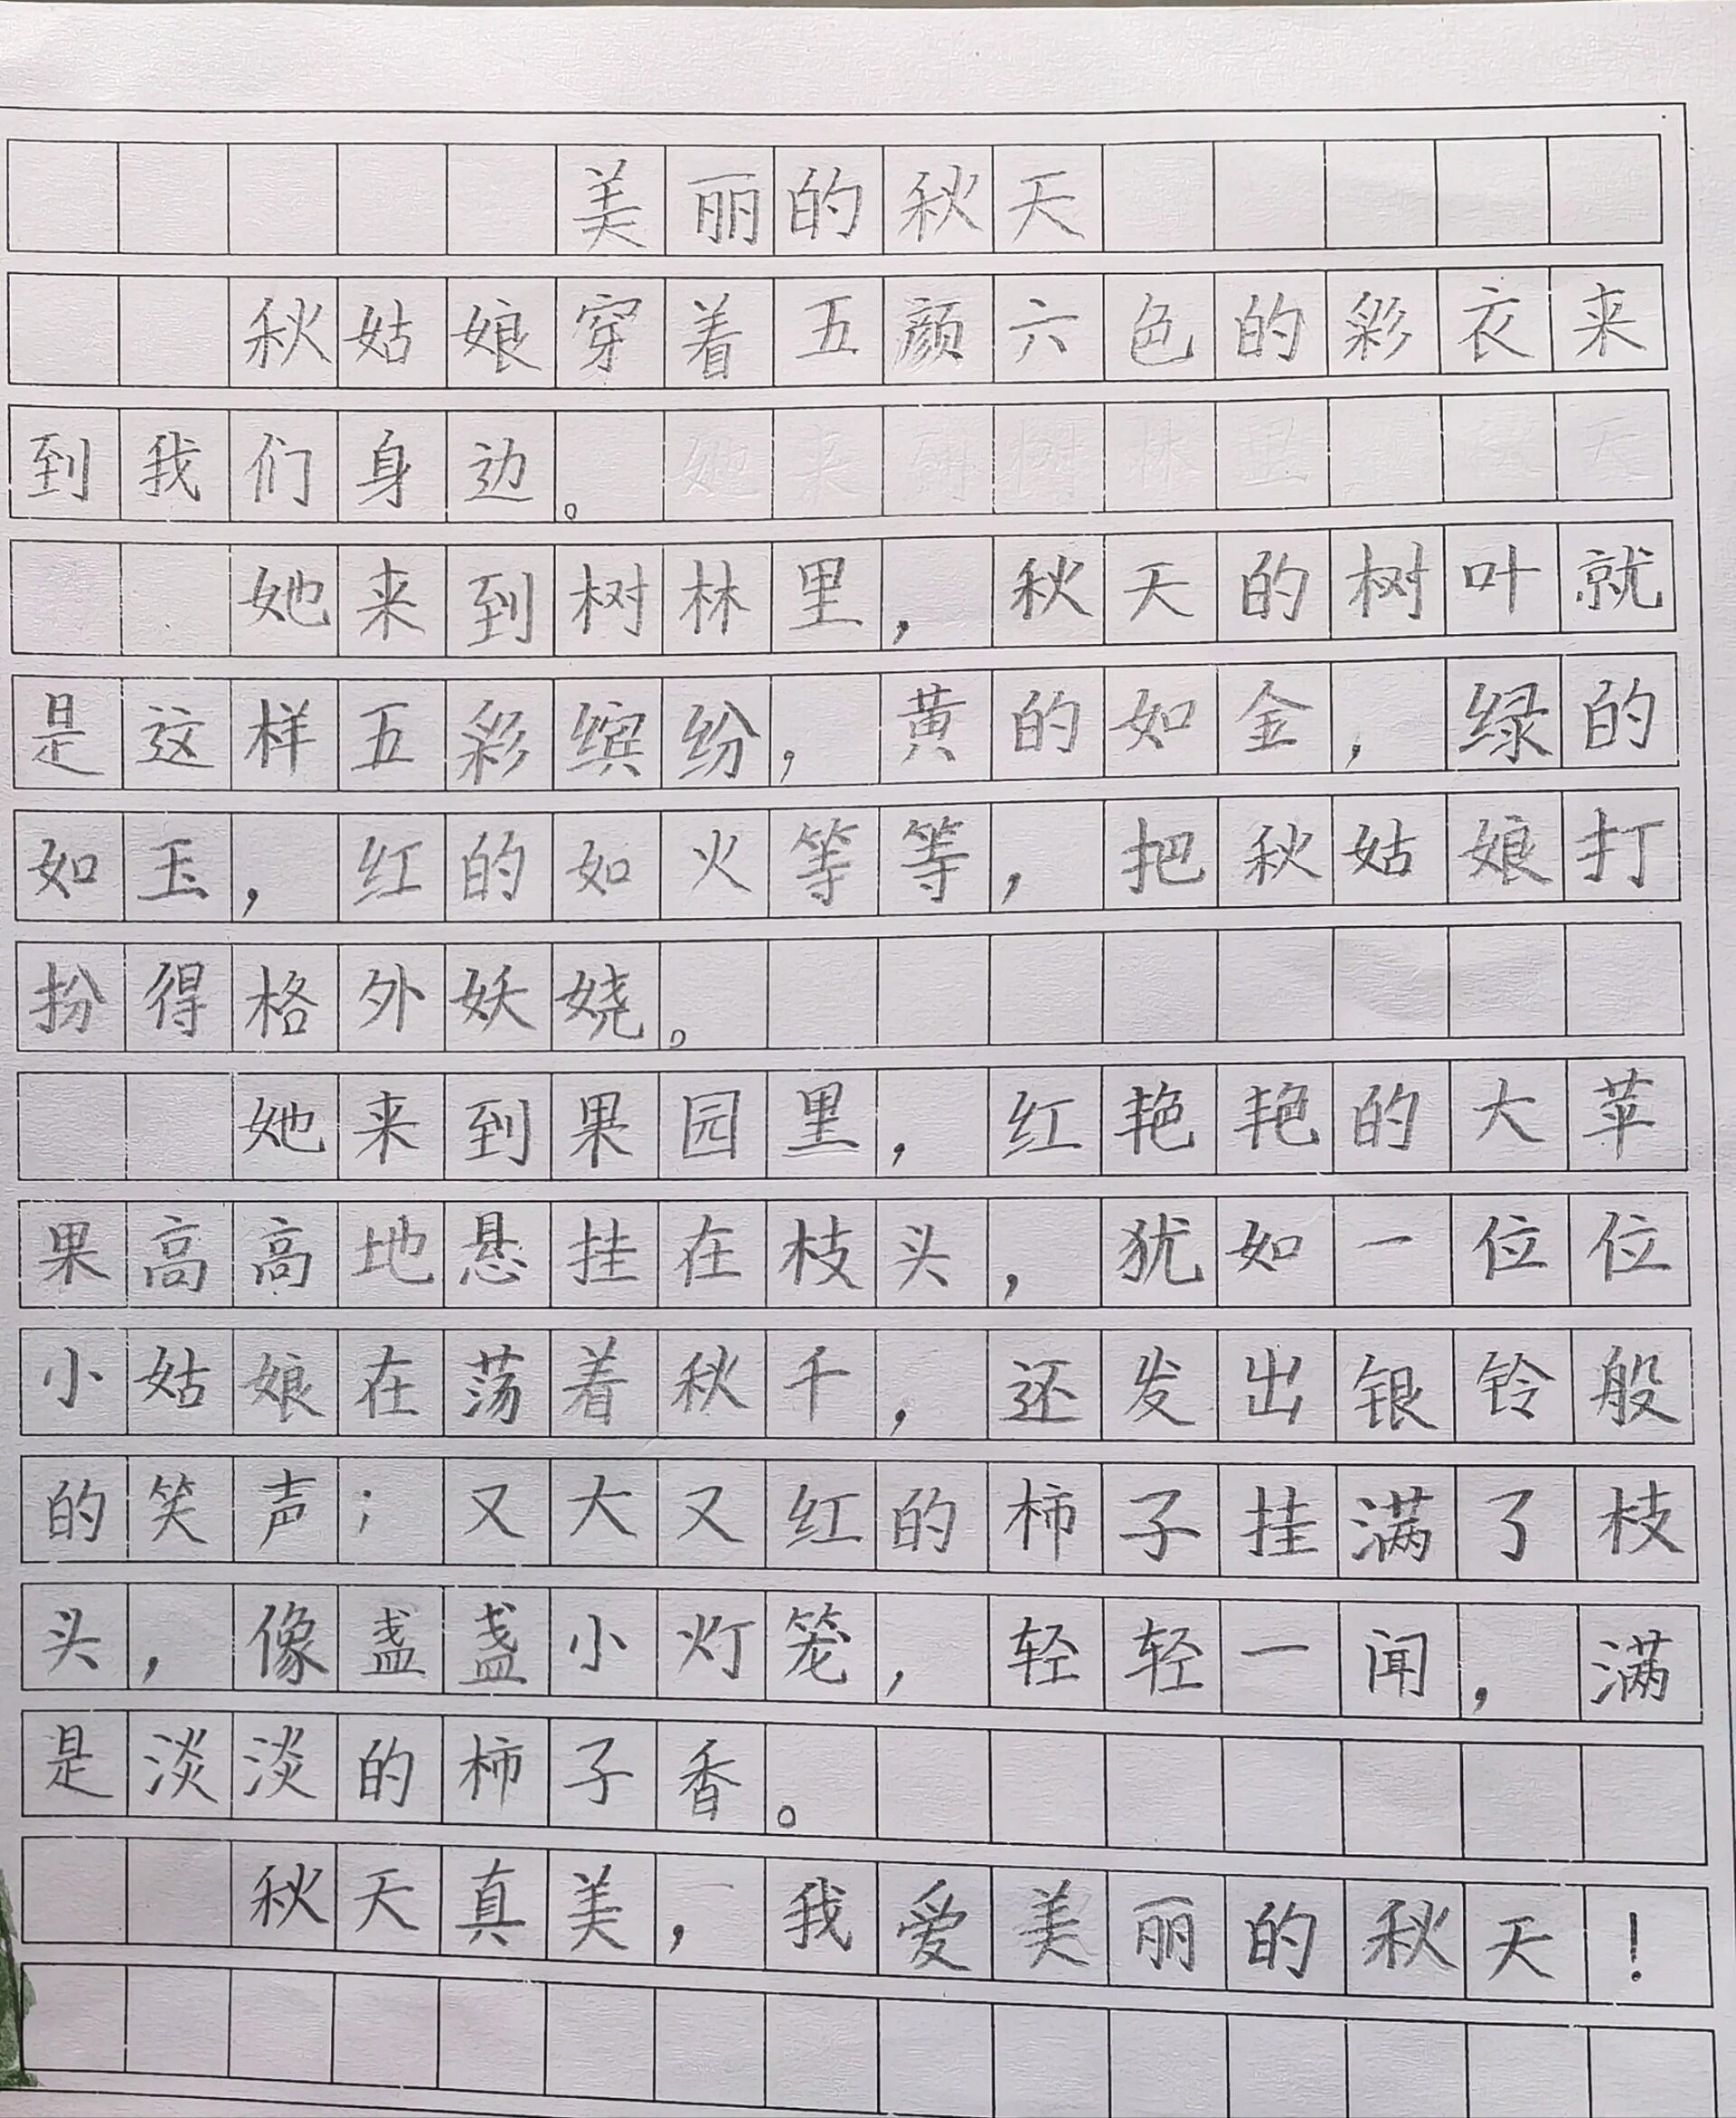 美丽的秋天
秋姑娘穿着五颜六色的彩衣来
到我们身边。
她来到树林里，秋天的树叶就
是这样五彩缤纷，黄的如金，绿的
如玉，红的如火等等，把秋姑娘打
扮得格外妖娆。
她来到果园里，红艳艳的大苹
果高高地悬挂在枝头，犹如一位位
小姑娘在荡着秋千，还发出银铃般
的笑声；又大又红的柿子挂满了枝
头，像盏盏小灯笼，轻轻一闻，满
是淡淡的柿子香。
秋天真美，我爱美丽的秋天！